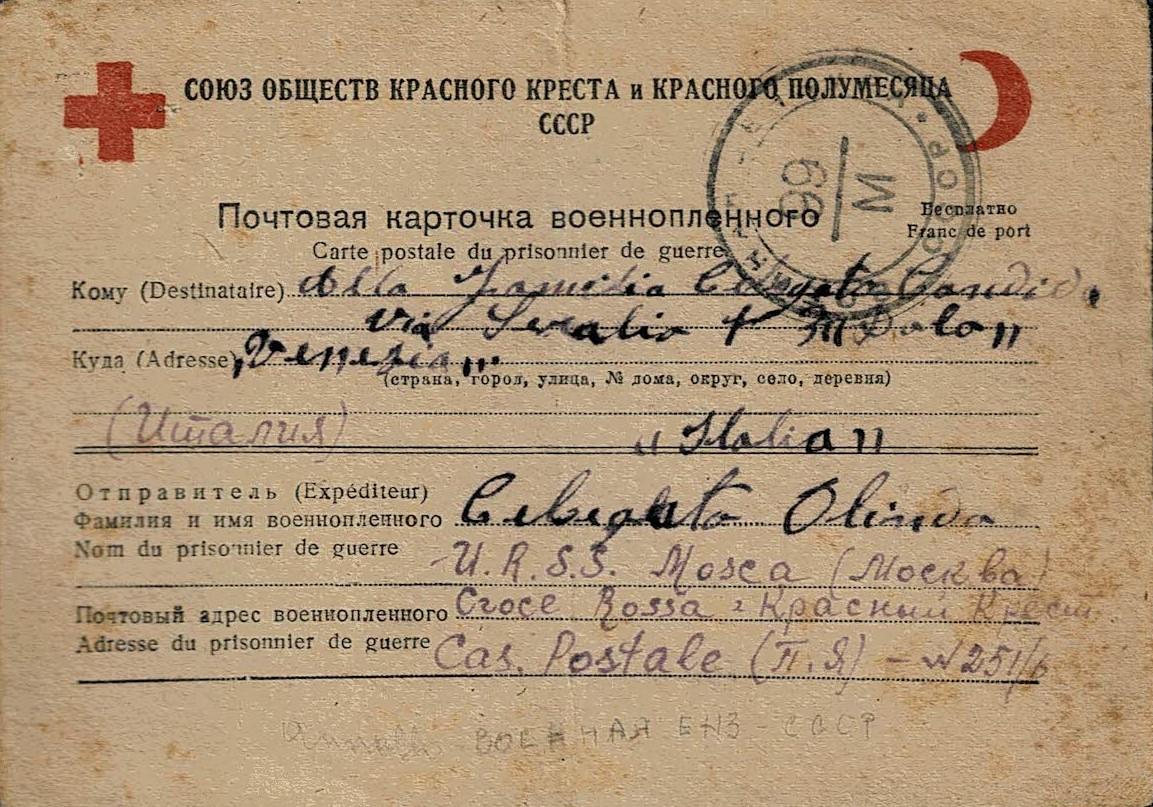 СОЮЗ ОБЩЕСТВ КРАСНОГО КРЕСТА и КРАСНОГО ПОЛУМЕСЯЦА
СССР
Почтовая карточка военнопленного
Бесплатно
Franc de port
Carte postale du prisonnier de guerre
Кому (Destinataire) Alla Famiglia Candido
Via
Куда (Adresse) „Venezia„
(страна, город, улица, № дома, округ, село, деревня)
(Италия) „Italia„
Отправитель (Expéditeur)
Фамилия и имя военнопленного Olindo
Nom du prisonnier de guerre
U.R.S.S. Mosca (Москва)
Почтовый адрес военнопленного Croce Rossa : Красный Крест
Adresse du prisonnier de guerre Cas. Postale (П.Я) – № 251/6
ВОЕННАЯ СССР
М
66